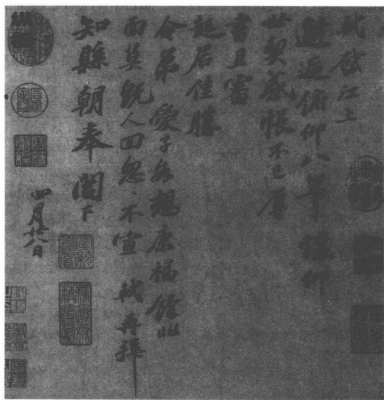 軾啓江上
邂逅俯仰八年懷仰
世契感悵不已辱
書且審
起居佳勝
令弟愛子各想康福餘非
面莫既人回怱怱不宣 軾再拜
知縣朝奉閣下
四月廿八日